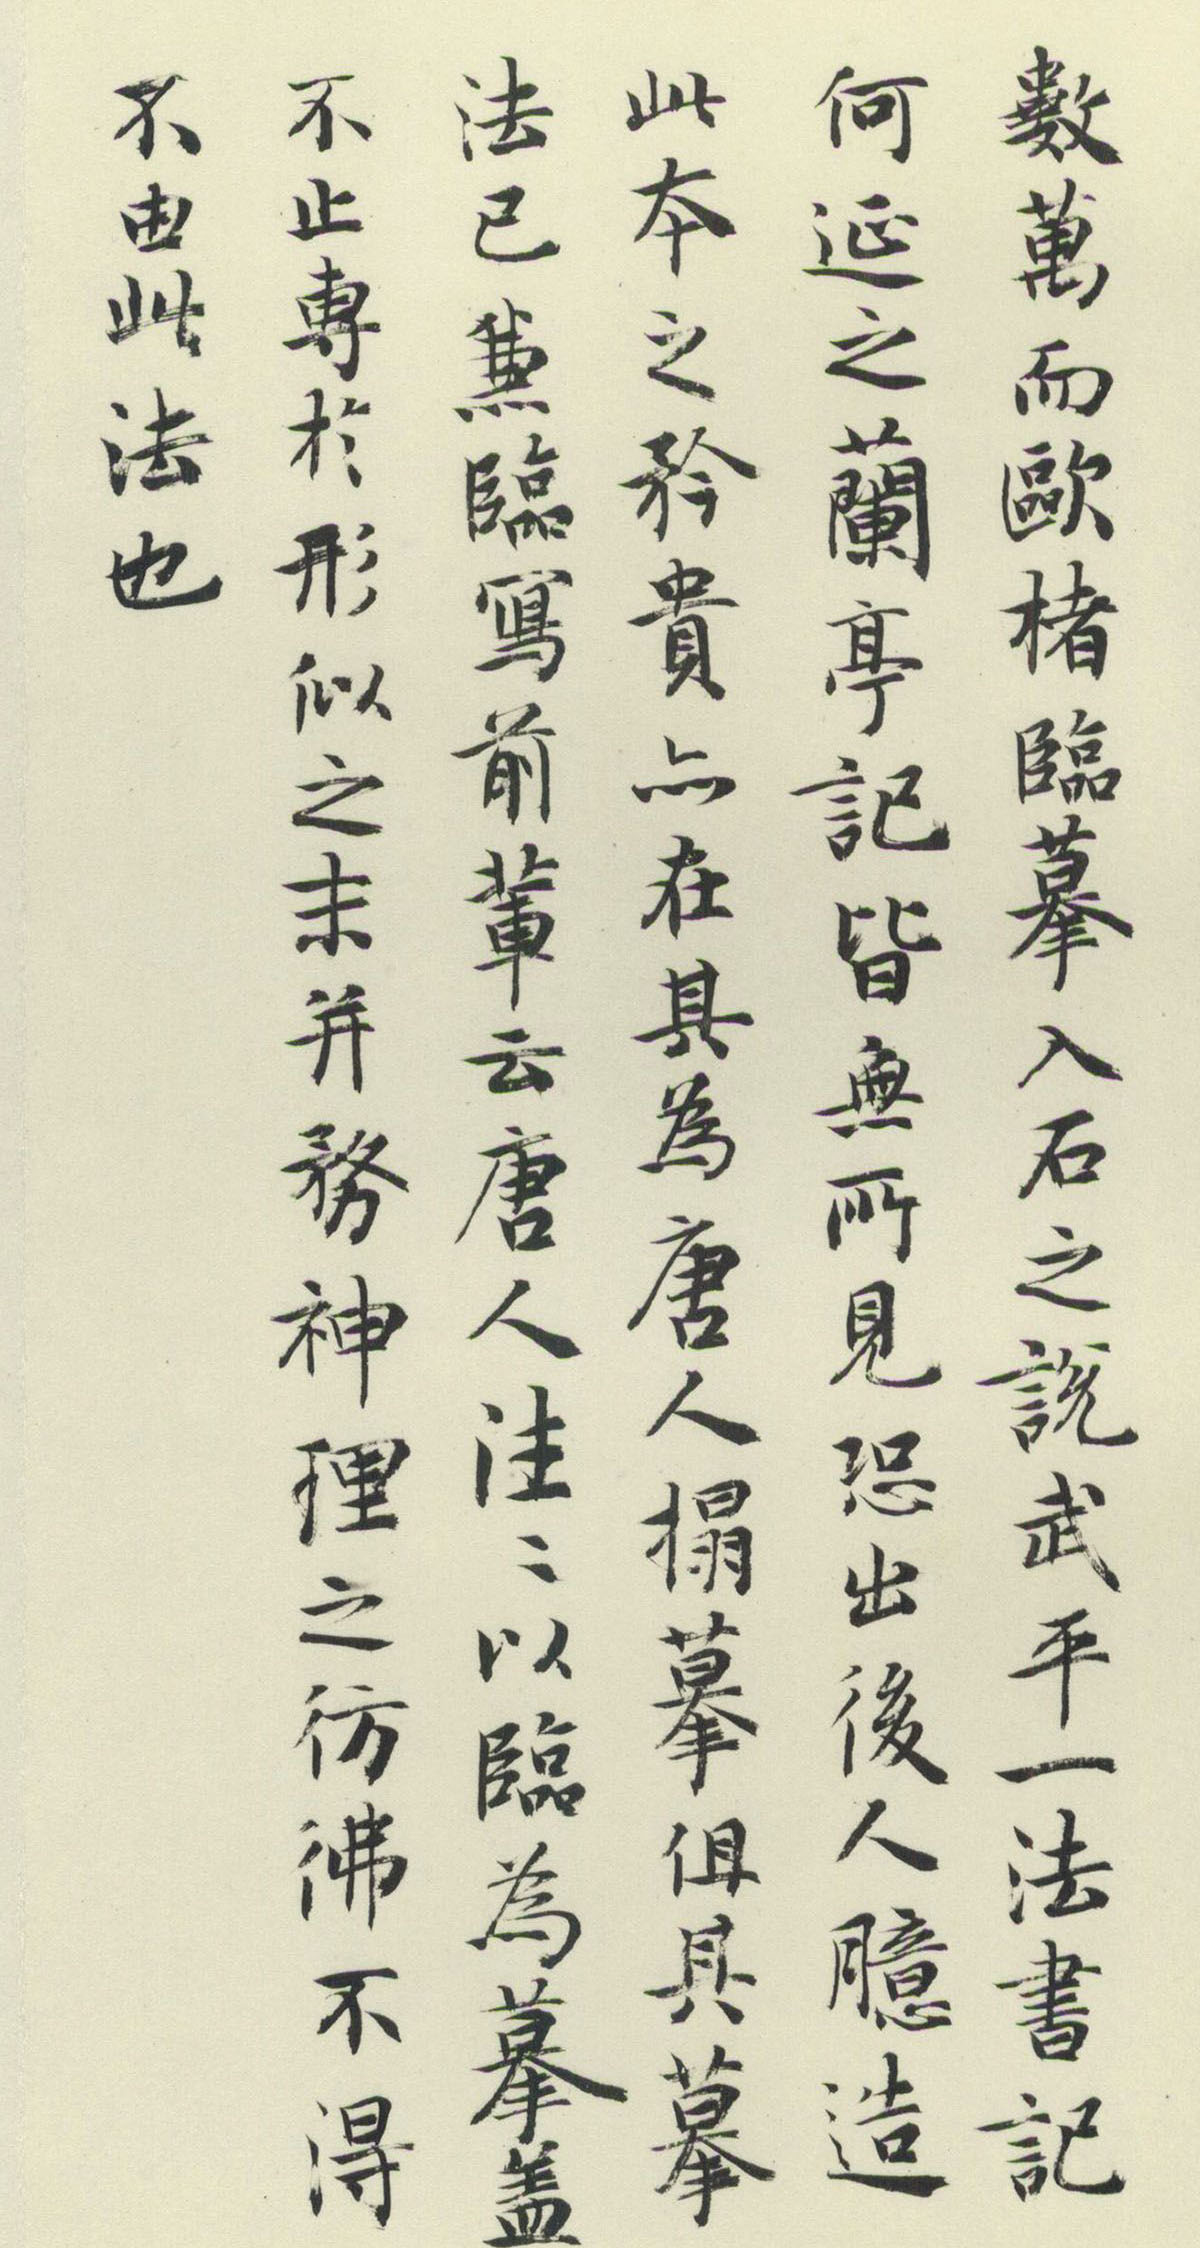 數萬而歐楮臨摹入石之說武平一法書記
何延之蘭亭記皆無所見恐出後人臆造
此本之矜貴亦在其為唐人搨摹但其摹
法已兼臨寫前輩云唐人往〻以臨為摹蓋
不止專於形似之末并務神理之彷彿不得
不由此法也